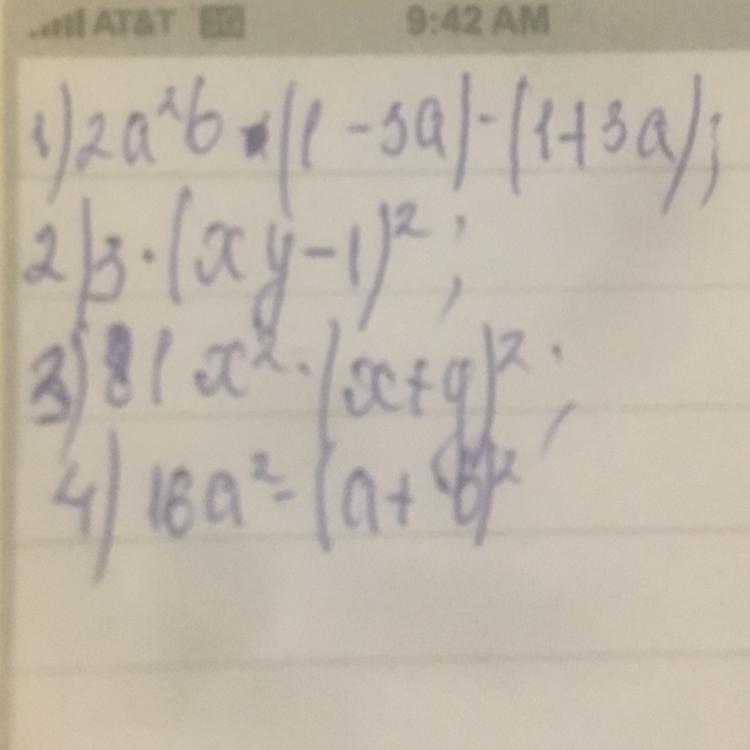 AT&T 9:42 AM
1) 2a²b · (1 - 3a) · (1 + 3a);
2) 3 · (xy - 1)²;
3) 81x² · (x + y)²;
4) 16a² - (a + b)²